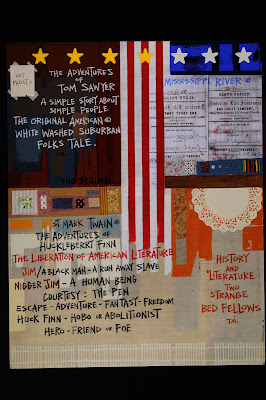 THE ADVENTURES
OF
TOM SAWYER
A SIMPLE STORY ABOUT
SIMPLE PEOPLE
THE ORIGINAL AMERICAN ©
WHITE WASHED SUBURBAN
FOLKS TALE.
MISSISSIPPI RIVER ©
THE SEQUEL
BY MARK TWAIN ©
THE ADVENTURES OF
HUCKLEBERRY FINN
THE LIBERATION OF AMERICAN LITERATURE
JIM/A BLACK MAN-A RUN AWAY SLAVE
NIGGER JIM - A HUMAN BEING
COURTESY: THE PEN
ESCAPE-ADVENTURE-FANTASY-FREEDOM
HUCK FINN-HOBO OR ABOLITIONIST
HERO-FRIEND OR FOE
HISTORY
AND
"LITERATURE
TWO
STRANGE
BED FELLOWS
TM.